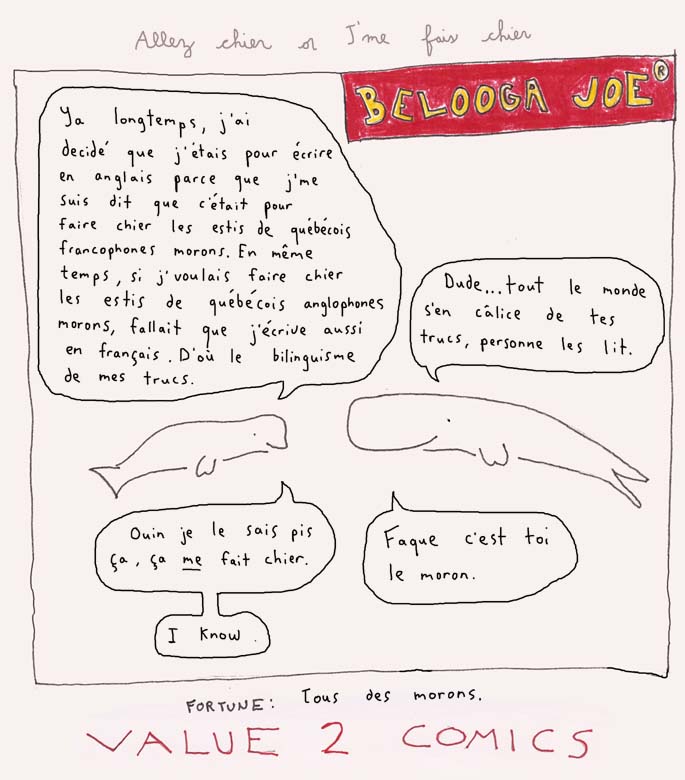 Allez chier or J'me fais chier
BELOOGA JOE®
Ya longtemps, j'ai
decidé que j'étais pour écrire
en anglais parce que j'me
suis dit que c'était pour
faire chier les estis de québécois
francophones morons. En même
temps, si j'voulais faire chier
les estis de québécois anglophones
morons, fallait que j'écrive aussi
en français. D'où le bilinguisme
de mes trucs.
Dude...tout le monde
s'en câlice de tes
trucs, personne les lit.
Ouin je le sais pis
ça, ça me fait chier.
I know.
Faque c'est toi
le moron.
FORTUNE: Tous des morons.
VALUE 2 COMICS